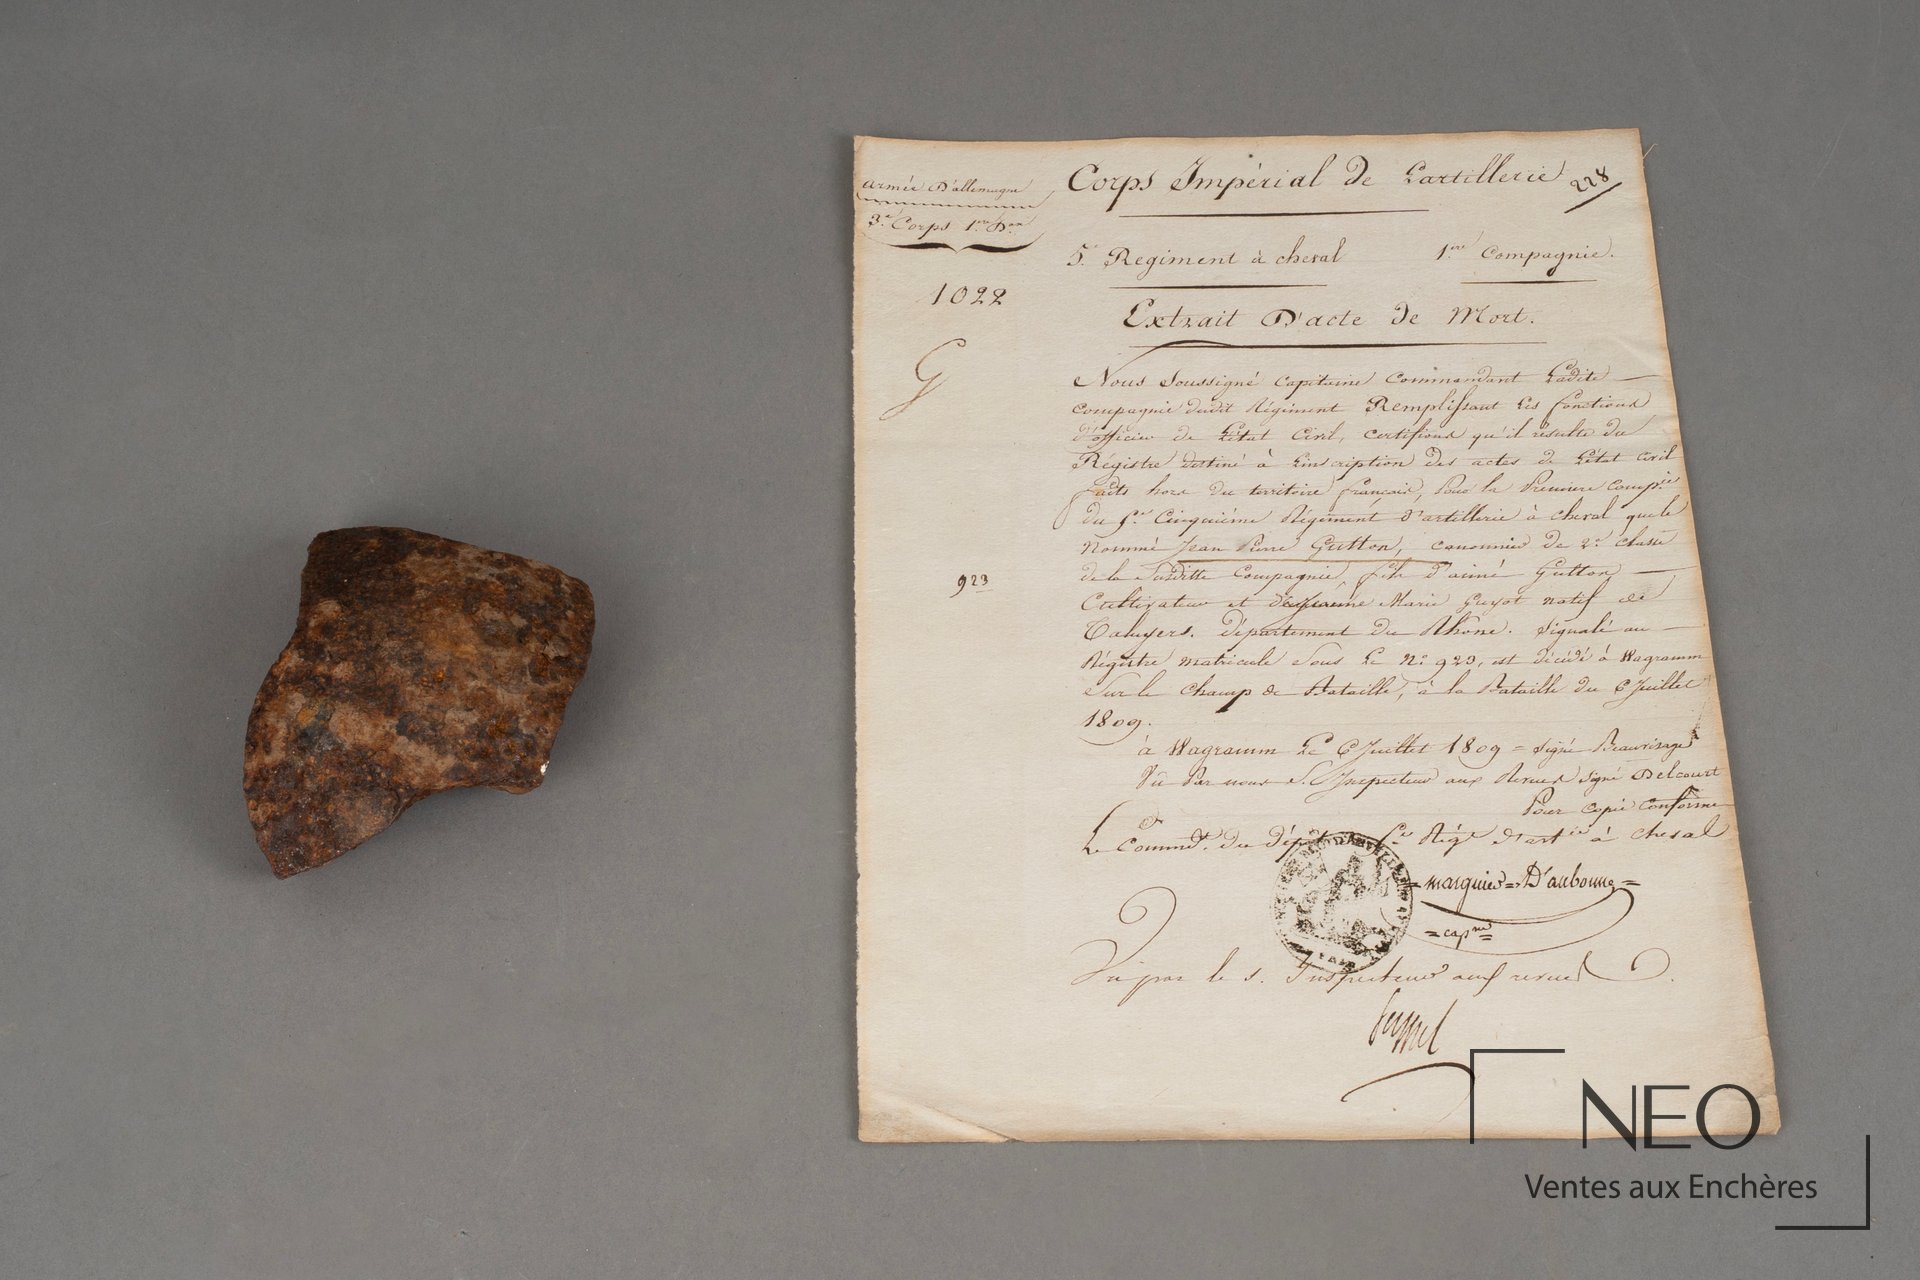 Armée D'allemagne
3e Corps 1ere Don
1022
G
923
Corps Impérial de Lartillerie
228
5e Regiment à cheval 1ere Compagnie.
Extrait D'acte de Mort.
Nous Soussigné Capitaine Commandant Ladite
Compagnie dudit Régiment Remplissant les fonctions
d'officier de L'état Civil, certifions qu'il résulte du
Régistre destiné à Linscription des actes de L'état Civil
faits hors du territoire français, Pour la Premiere Compie
du Cinquième Régiment d'artillerie à cheval que le
nommé Jean Pierre Gutton, canonnier de 2e classe
de la Susditte Compagnie, fils d'aimé Gutton
Cultivateur et de Marie Guyot natif de
Taluyers. département du Rhône. Signalé au
Régistre matricule Sous Le No 923, est décédé à Wagramm
Sur le champ de Bataille, à la Bataille du 6 Juillet
1809.
à Wagramm Le 6 Juillet 1809 = Signé Beauvisage
Vu Par nous S. Inspecteur aux Revues Signé Delcourt
Pour copie Conforme
Le Commdt. du dépôt Régt d'artie à cheval
= marquier = D'aubonne =
= capne =
Vu par le s. Inspecteur aux revues
NEO
Ventes aux Enchères